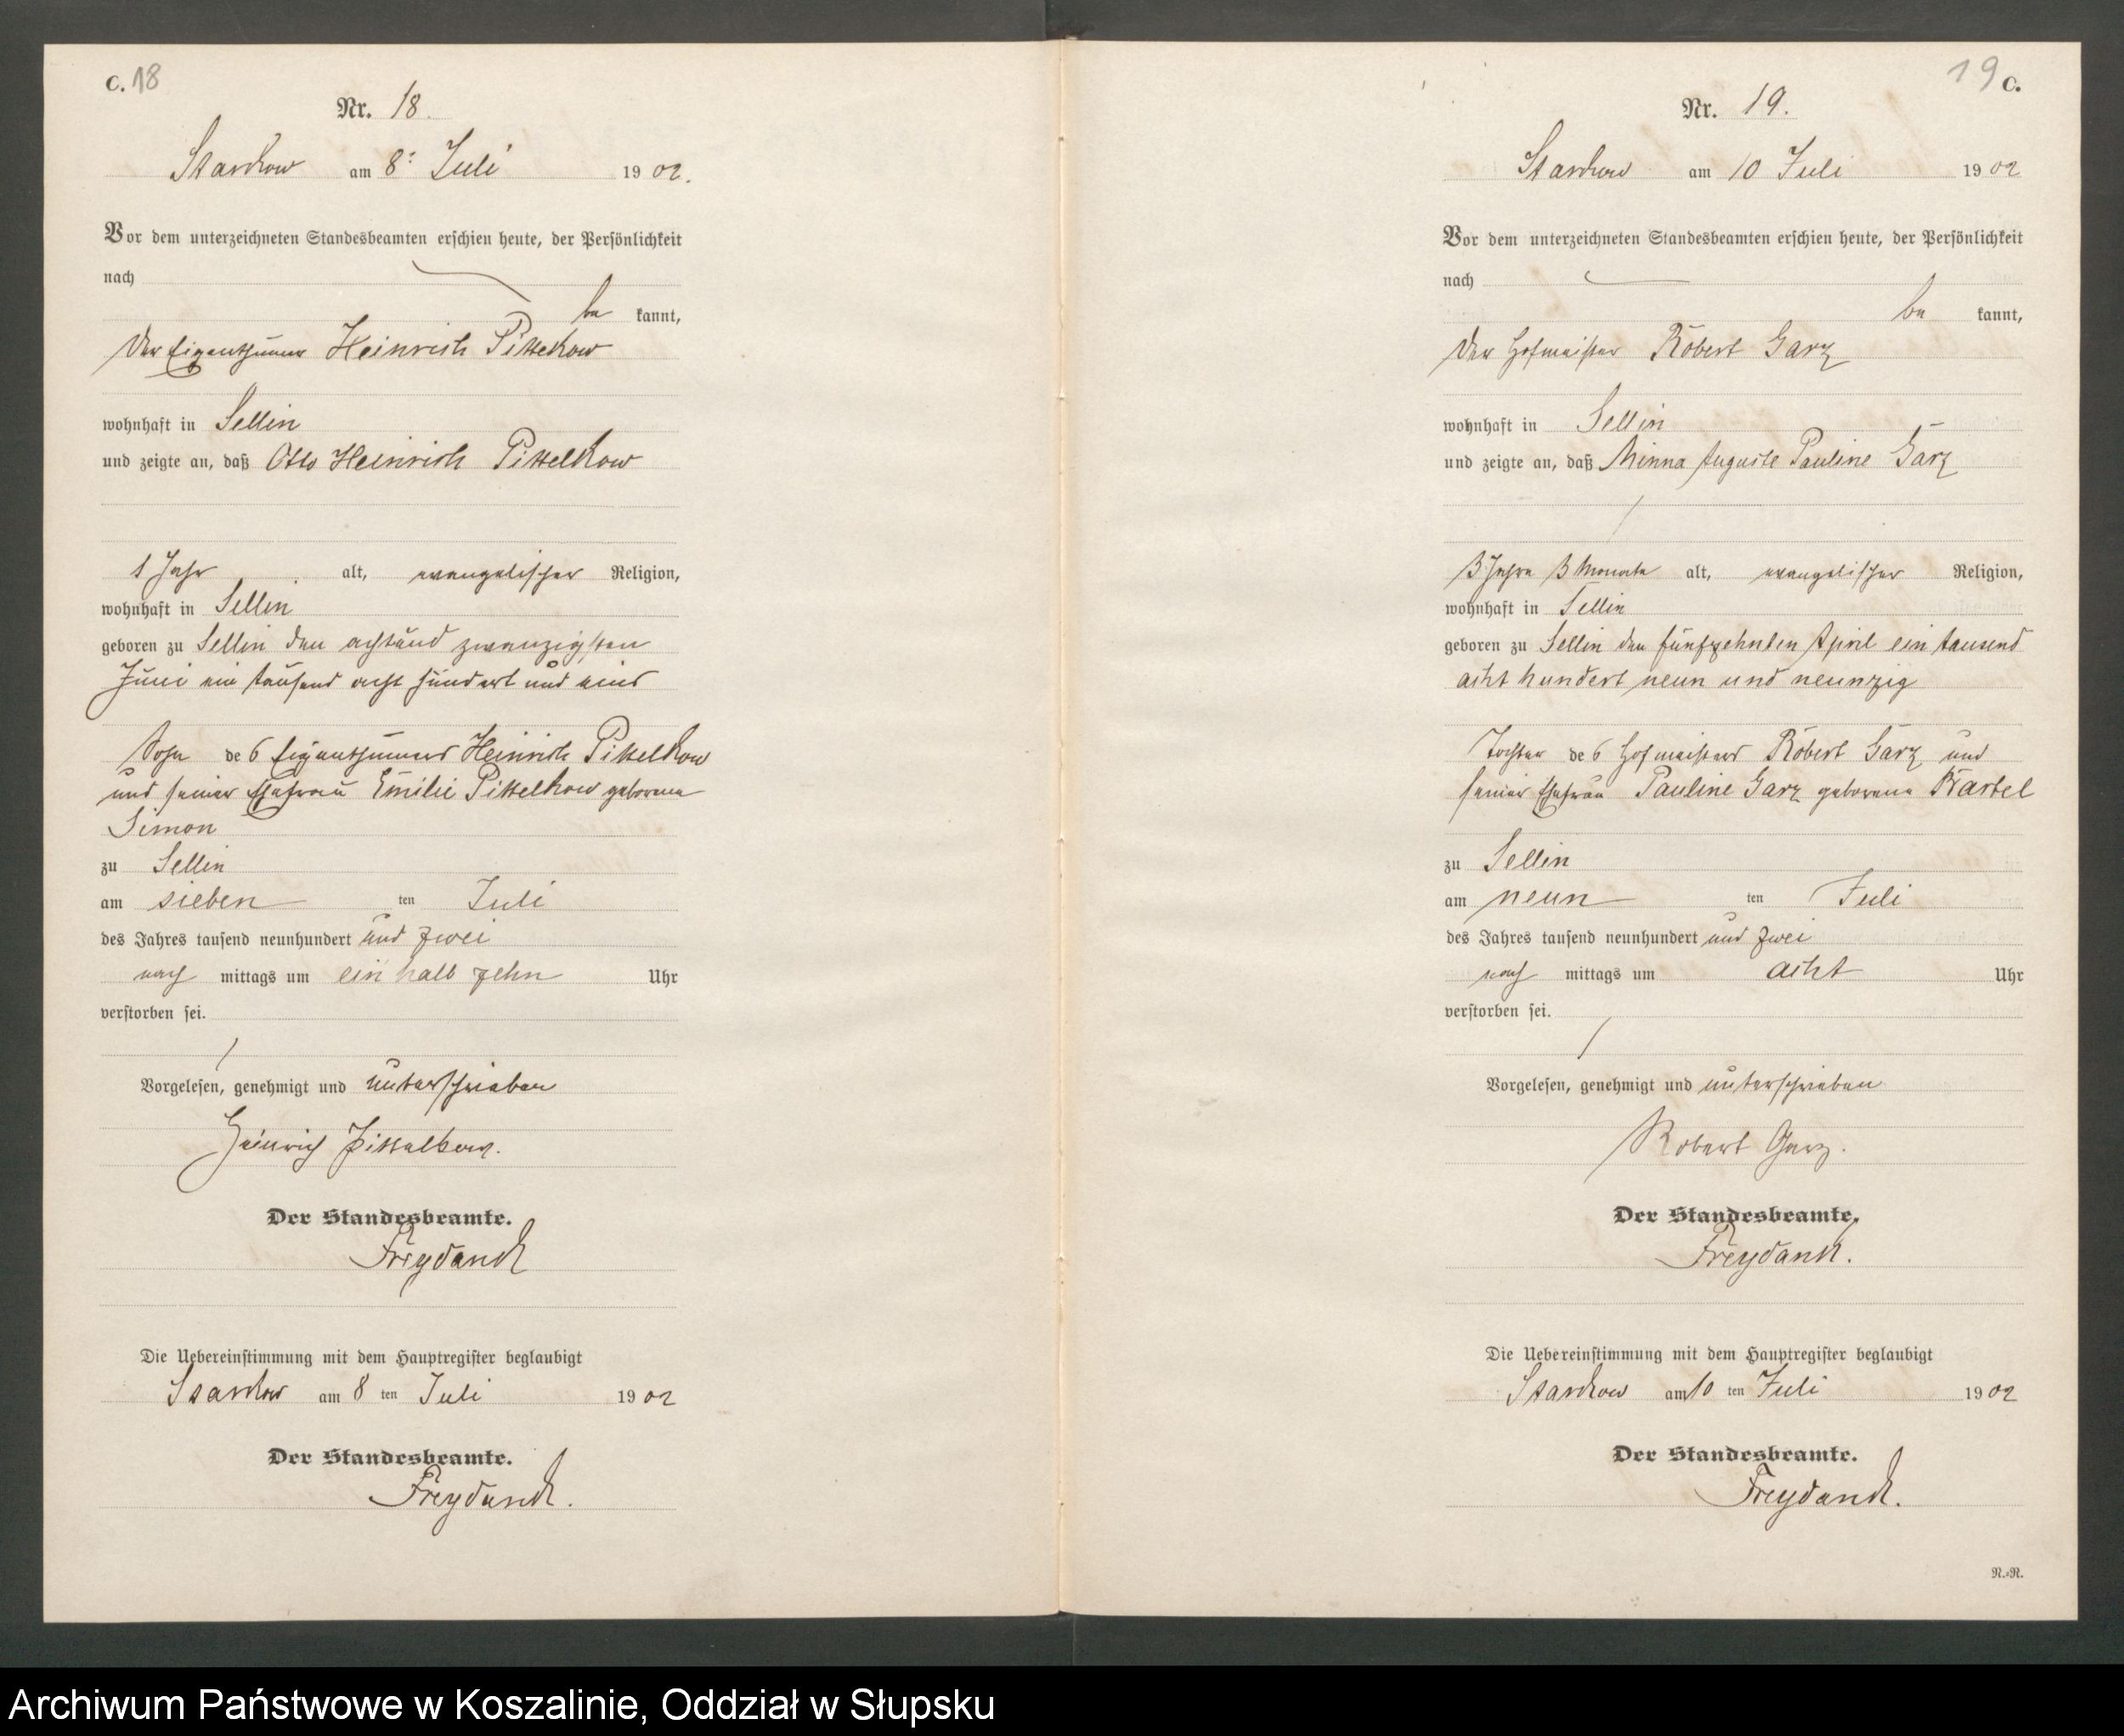 C. 18
Nr. 18.
Starkow am 8. Juli 1902.
Vor dem unterzeichneten Standesbeamten erschien heute, der Persönlichkeit
nach
be kannt,
Der Eigenthümer Heinrich Pittelkow
wohnhaft in Sellin
und zeigte an, daß Otto Heinrich Pittelkow
1 Jahr alt, evangelischer Religion,
wohnhaft in Sellin
geboren zu Sellin den achtund zwanzigsten
Juni ein tausend acht hundert und eins
Sohn des Eigenthümers Heinrich Pittelkow
und seiner Ehefrau Emilie Pittelkow geborene
Simon
zu Sellin
am sieben ten Juli
des Jahres tausend neunhundert und zwei
nach mittags um ein halb zehn Uhr
verstorben sei.
Vorgelesen, genehmigt und unterschrieben
Heinrich Pittelkow.
Der Standesbeamte.
Freydanck
Die Uebereinstimmung mit dem Hauptregister beglaubigt
Starkow am 8 ten Juli 1902
Der Standesbeamte.
Freydanck.
19 C.
Nr. 19.
Starkow am 10 Juli 1902
Vor dem unterzeichneten Standesbeamten erschien heute, der Persönlichkeit
nach
be kannt,
Der Hofmeister Robert Garz
wohnhaft in Sellin
und zeigte an, daß Minna Auguste Pauline Garz
3 Jahre 3 Monate alt, evangelischer Religion,
wohnhaft in Sellin
geboren zu Sellin den fünfzehnten April ein tausend
acht hundert neun und neunzig
Tochter des Hofmeisters Robert Garz und
seiner Ehefrau Pauline Garz geborene Bartel
zu Sellin
am neun ten Juli
des Jahres tausend neunhundert und zwei
nach mittags um acht Uhr
verstorben sei.
Vorgelesen, genehmigt und unterschrieben
Robert Garz.
Der Standesbeamte.
Freydank.
Die Uebereinstimmung mit dem Hauptregister beglaubigt
Starkow am 10 ten Juli 1902
Der Standesbeamte.
Freydanck.
N.=R.
Archiwum Państwowe w Koszalinie, Oddział w Słupsku